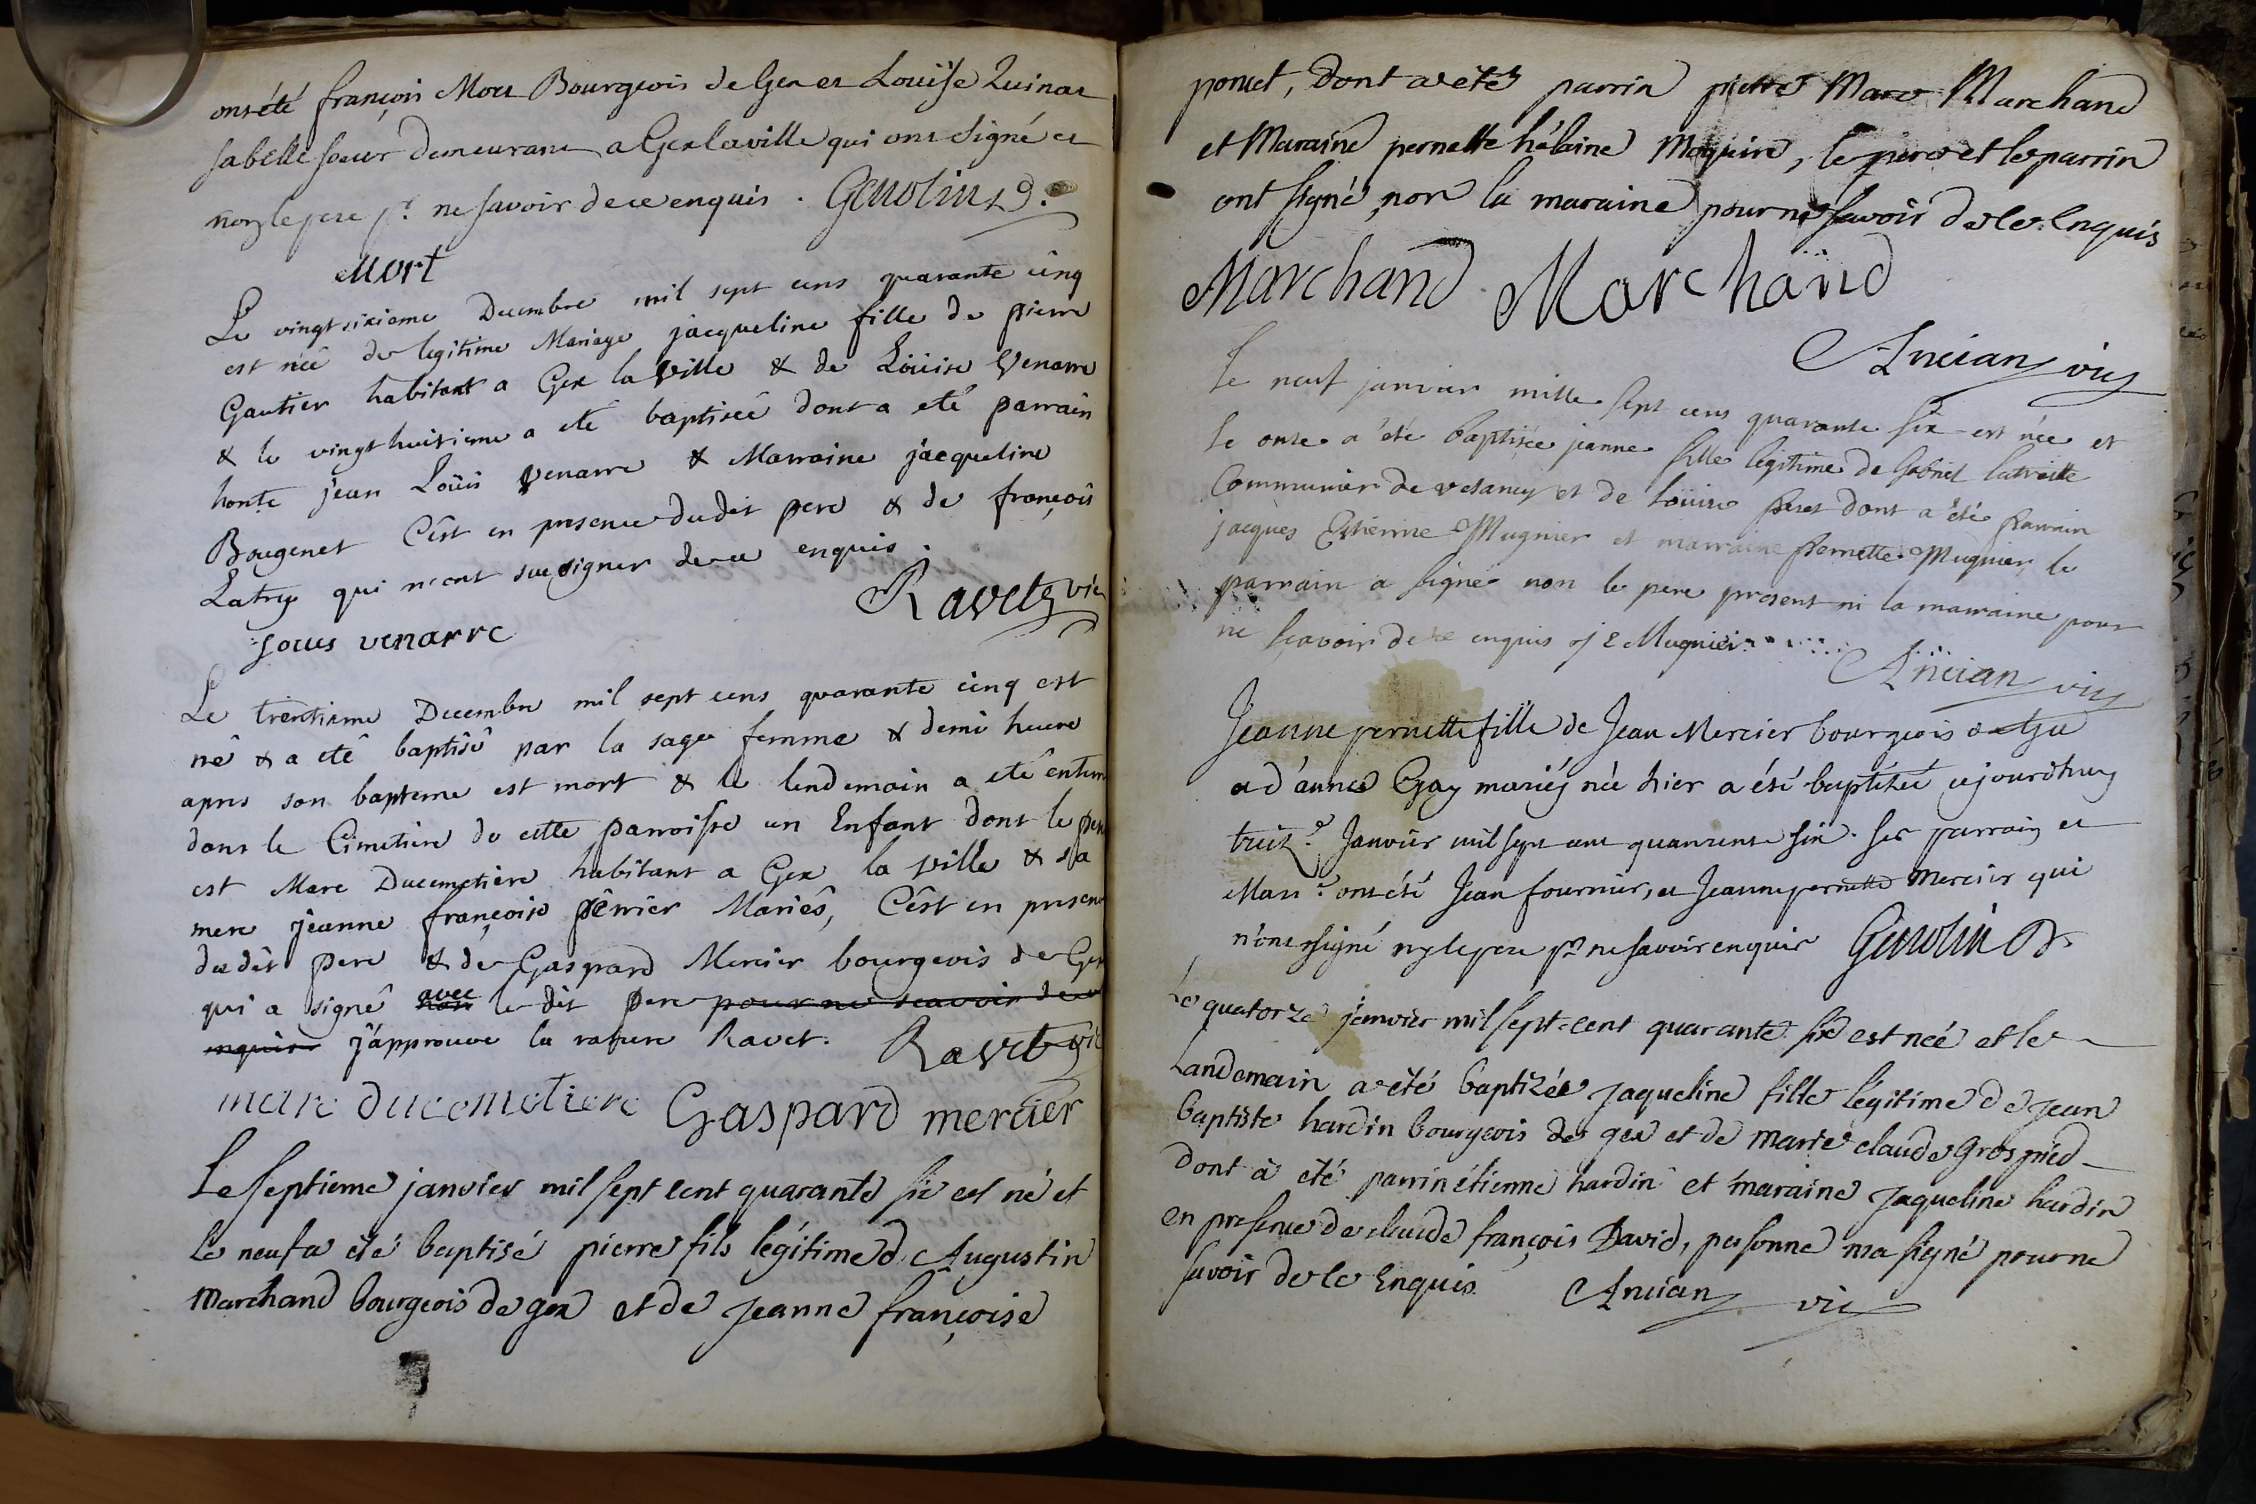 ont été françois Mort Bourgeois de Gex et Louïse Quinat
sa belle soeur demeurant a Gex la ville qui ont signé et
non le pere pr. ne savoir de ce enquis. Genolin
Mort
Le vingt sixieme Decembre mil sept cens quarante cinq
est née de legitime Mariage jacqueline fille de pierre
Gautier habitant a Gex la ville & de Loüise Venarre
& le vingt huitieme a eté baptisée dont a eté parrain
honte jean Loüis venarre & Marraine jacqueline
Bougenet C'êst en presence du dit pere & de françois
qui n'ont sue signer de ce enquis.
Ravet vic
Louis venarre
Le trentieme Decembre mil sept cens quarante cinq est
né & a eté baptisé par la sage femme & demi heure
apres son bapteme est mort & le lendemain a eté enterré
dans le Cimetiere de cette parroisse un Enfant dont le pere
est Marc Ducemetiere habitant a Gex la ville & sa
mere jeanne françoise pêrrier Mariés, C'êst en presence
du dit pere & de Gaspard Mercier bourgeois de Gex
qui a signé non avec le dit pere pour ne scavoir de ce
enquis j'approuve la rature Ravet. Ravet vic
marc ducemetiere Gaspard mercier
Le septieme janvier mil sept cent quarante six est né et
le neuf a été baptisé pierre fils légitime d. Augustin
Marchand bourgeois de gex et de jeanne françoise
poncet, Dont a été parrin pierre Marc Marchand
et Maraine pernette hélaine , le pere et le parrin
ont signé, non la maraine pour ne savoir de ce Enquis
Marchand Marchand
Ancian vic
Le neuf janvier mille sept cens quarante six est née et
le onze a été baptisée jeanne fille legitime de Gabriel
Communier de vesancy et de Loüise peret dont a été parrain
jacques Etienne Mugnier et marraine pernette Mugnier, le
parrain a signé non le pere present ni la marraine pour
ne sçavoir de ce enquis j E Mugnier
Ancian vic
Jeanne pernette fille de Jean Mercier bourgeois de Gex
et d'anne Gay mariés née hier a été baptisée ajourdhuy
treize Janvier mil sept cent quarante six. Ses parrain et
Marr.e ont été Jean fournier, et Jeanne pernette Mercier qui
n'ont signé ny le pere pr ne savoir enquis Genolin
Le quatorze janvier mil sept-cent quarante six est née et le
Landemain a été baptizée jaqueline fille légitime de jean
baptiste hardin bourgeois de gex et de marie claude grospied
dont à été parrin étienne hardin et maraine jaqueline hardin
en presence de claude françois David, personne n'a signé pour ne
savoir de ce Enquis. Ancian vic